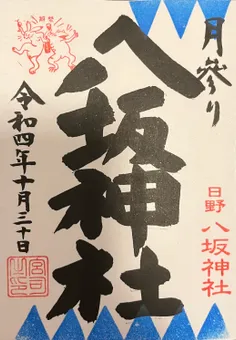 月參り
八坂神社
日野
八坂神社
令和四年十月三十日